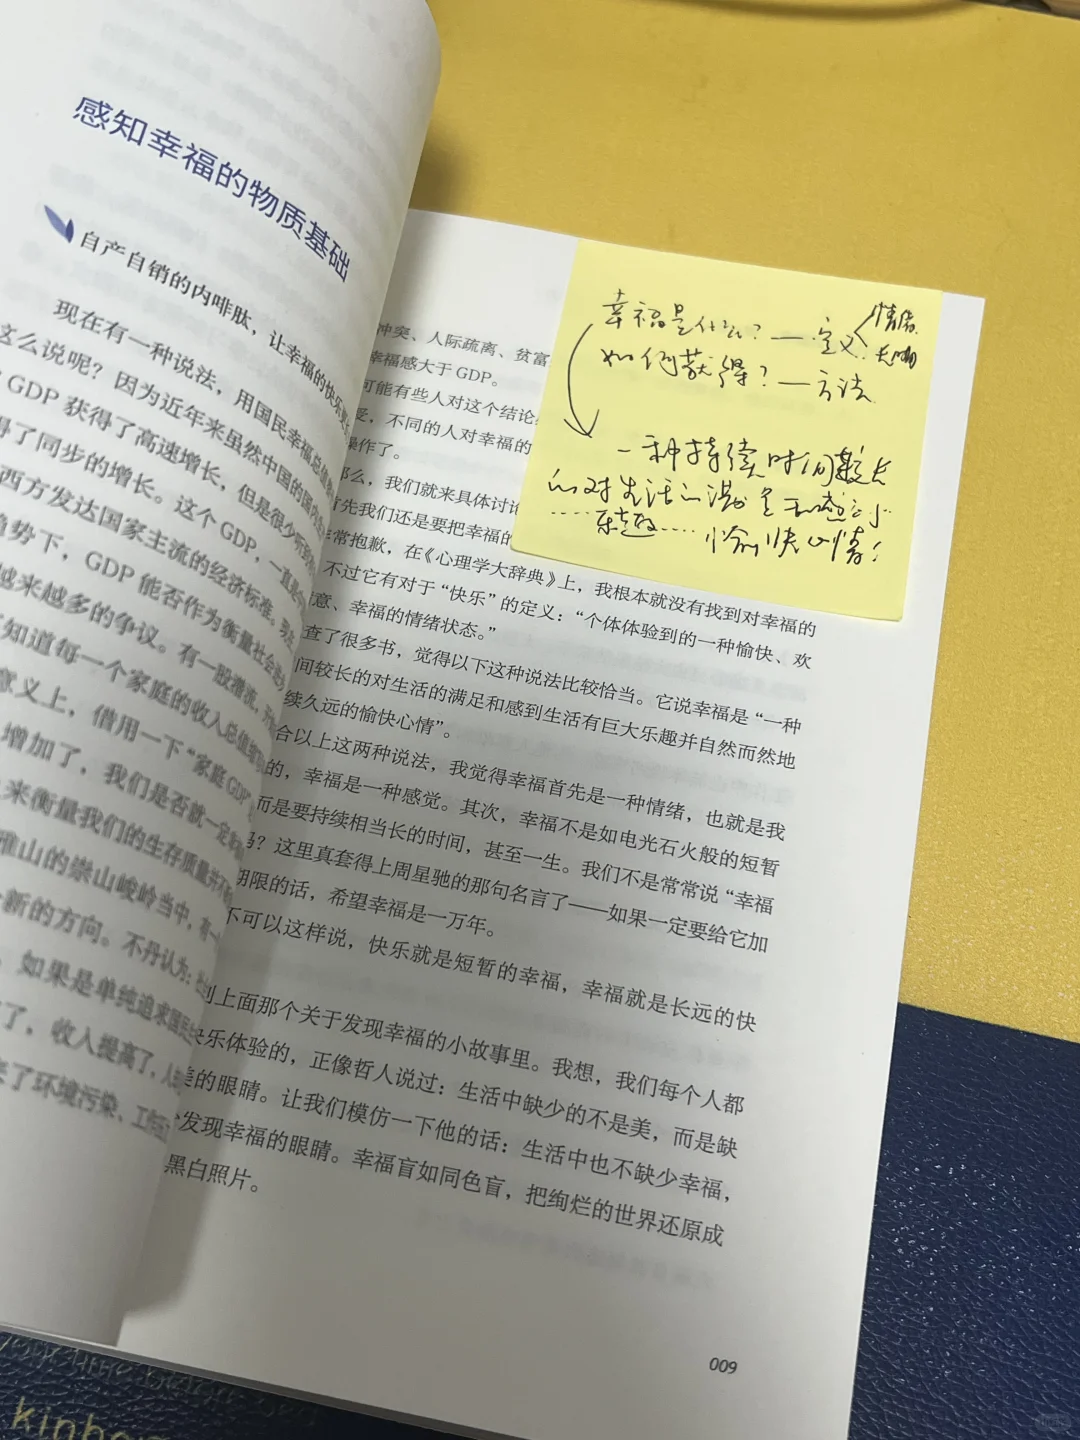 感知幸福的物质基础
自产自销的内啡肽，让幸福的快乐
现在有一种说法，用国民幸福总值
这么说呢？因为近年来虽然中国的国内
GDP 获得了高速增长，但是很少听到
得了同步的增长。这个 GDP，一直是
西方发达国家主流的经济标准。现在
趋势下，GDP 能否作为衡量社会
越来越多的争议。有一股潜流，开始
知道每一个家庭的收入总值增
意义上，借用一下“家庭 GDP”
增加了，我们是否就一定
来衡量我们的生存质量并不
雅山的崇山峻岭当中，有一
新的方向。不丹认为：
，如果是单纯追求国民
了，收入提高了，人
来了环境污染、工作
幸福是什么？—定义 情绪
长。
如何获得？—方法
一种持续时间较长
的对生活的满足和感
……乐趣……愉快心情
冲突、人际疏离、贫富
幸福感大于 GDP。
可能有些人对这个结论
受，不同的人对幸福的
操作了。
那么，我们就来具体讨论
首先我们还是要把幸福的
非常抱歉，在《心理学大辞典》上，我根本就没有找到对幸福的
不过它有对于“快乐”的定义：“个体体验到的一种愉快、欢
意、幸福的情绪状态。”
查了很多书，觉得以下这种说法比较恰当。它说幸福是“一种
间较长的对生活的满足和感到生活有巨大乐趣并自然而然地
续久远的愉快心情”。
合以上这两种说法，我觉得幸福首先是一种情绪，也就是我
的，幸福是一种感觉。其次，幸福不是如电光石火般的短暂
而是要持续相当长的时间，甚至一生。我们不是常常说“幸福
吗？这里真套得上周星驰的那句名言了——如果一定要给它加
期限的话，希望幸福是一万年。
不可以这样说，快乐就是短暂的幸福，幸福就是长远的快
到上面那个关于发现幸福的小故事里。我想，我们每个人都
快乐体验的，正像哲人说过：生活中缺少的不是美，而是缺
美的眼睛。让我们模仿一下他的话：生活中也不缺少幸福，
发现幸福的眼睛。幸福盲如同色盲，把绚烂的世界还原成
黑白照片。
009